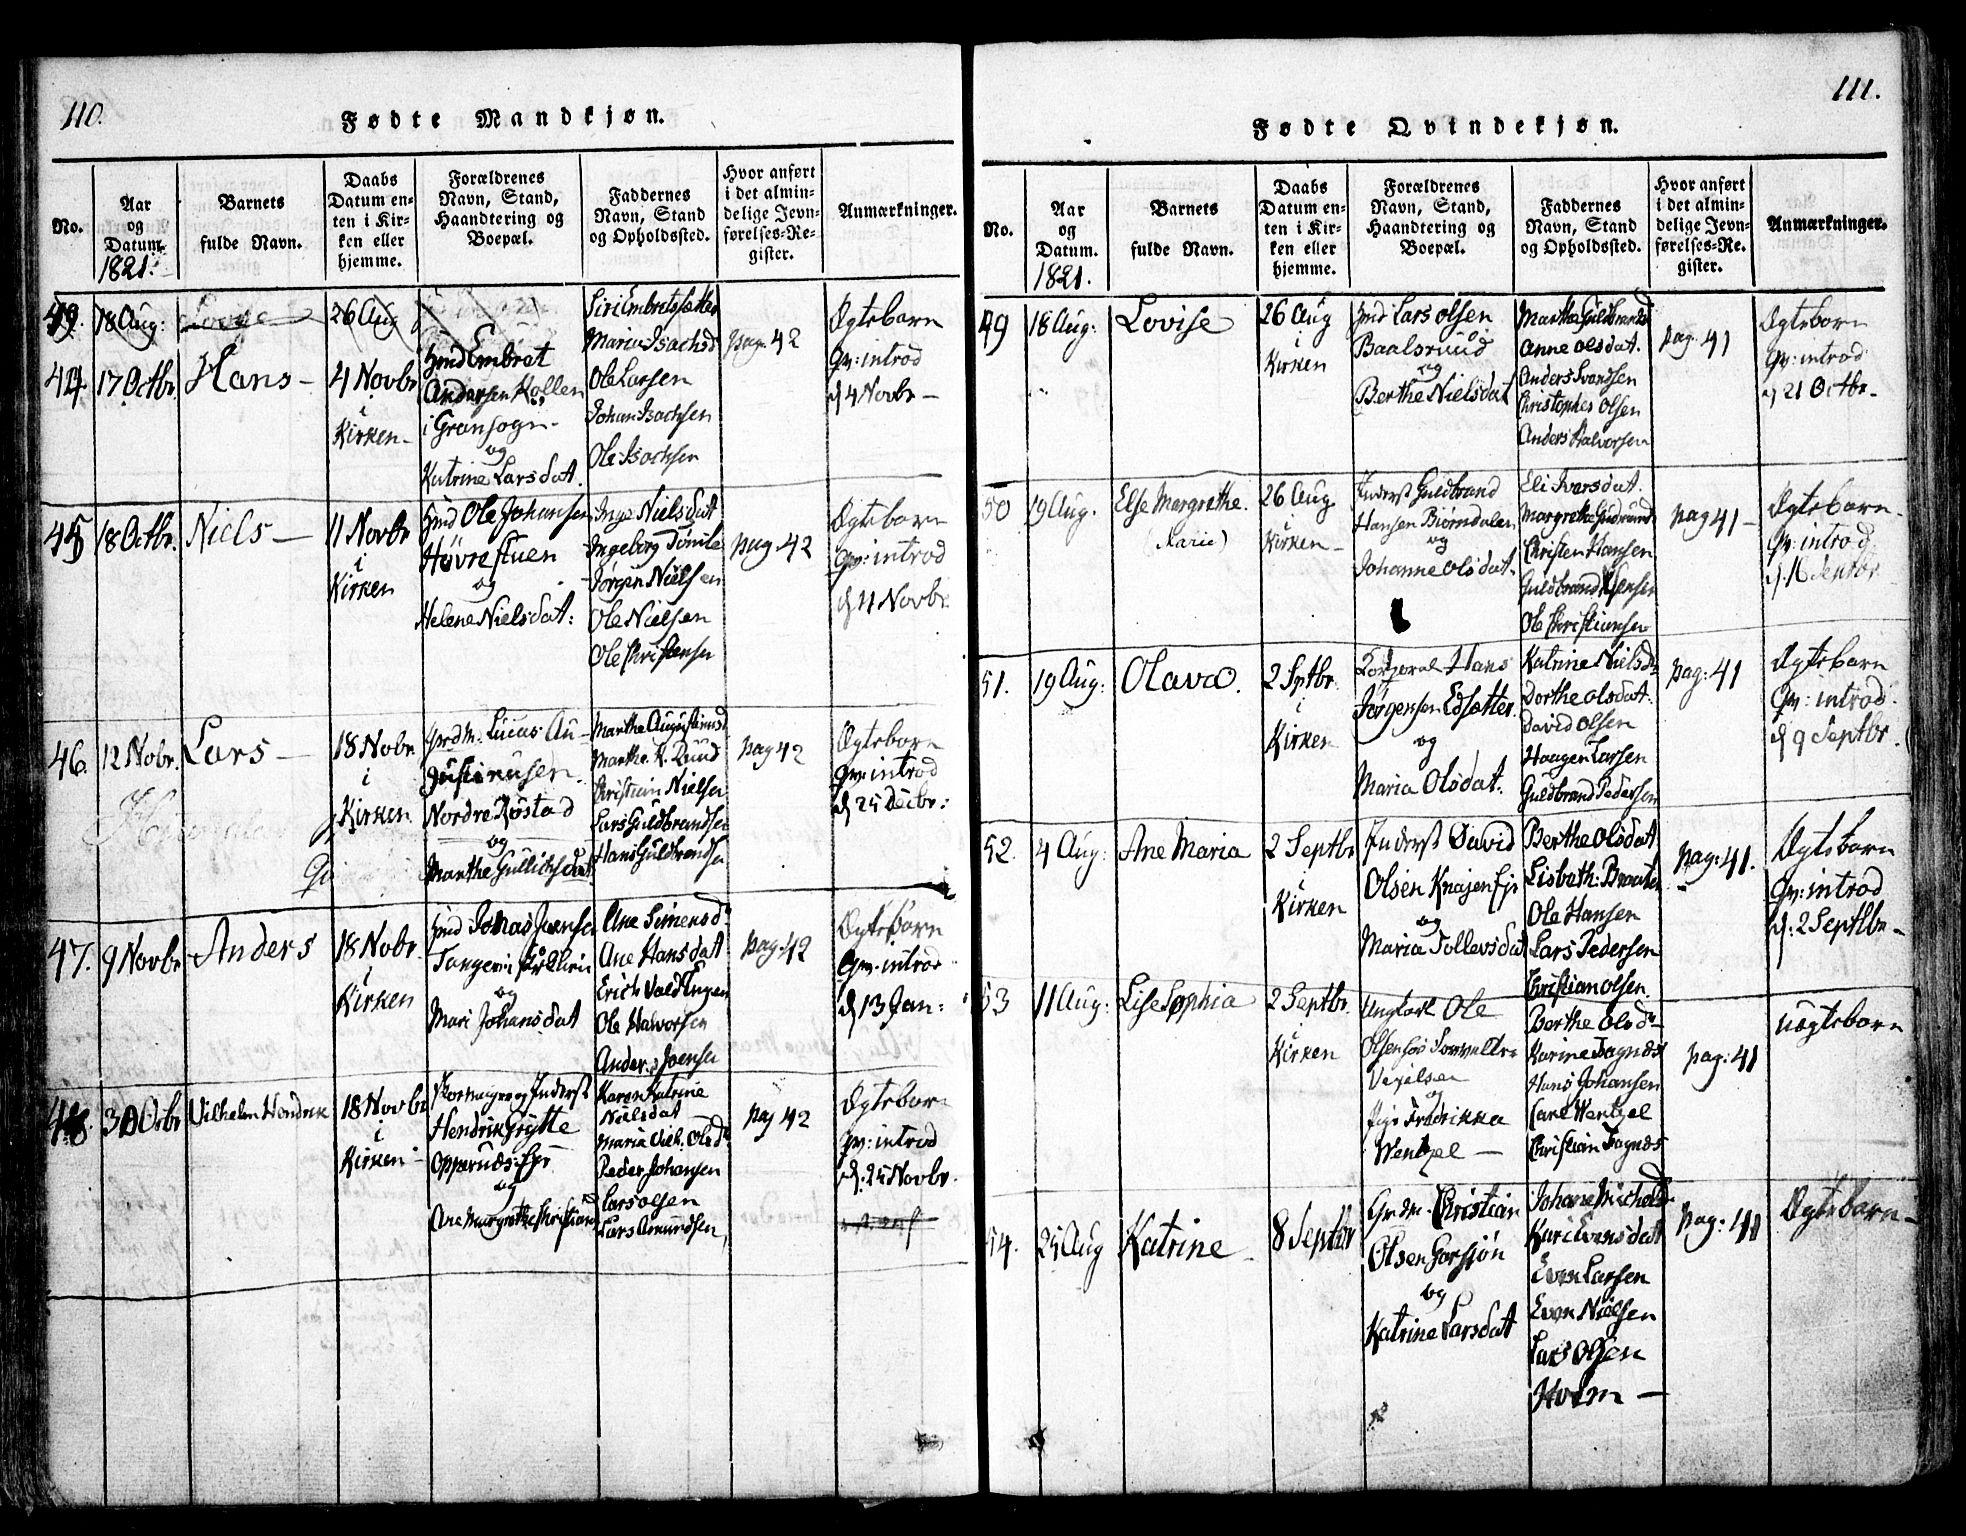 110.
Fødte Mandkjøn.
No.
Aar
og
Datum.
1821.
Barnets
fulde Navn.
Daabs
Datum en-
ten i Kir-
ken eller
hjemme.
Forældrenes
Navn, Stand,
Haandtering og
Boepæl.
Faddernes
Navn, Stand
og Opholdssted.
Hvor anført
i det almin-
delige Jevn-
førelses-Re-
gister.
Anmærkninger.
49. 18 Aug: Lovise 26 Aug
44. 17 Octbr. Hans –
4 Novbr
i
Kirken –
Gmd Embret
Andersen Kollen
i Gransogn –
og
Katrine Larsdat.
Siri Embretsætter
Maria Isachsd
Ole Larsen
Johan Isachsen
Ole Isachsen
pag. 42
Ægtebarn
Gv: introd
d 4 Novbr –
45 18 Octbr. Niels –
11 Novbr
i
Kirken
Gmd Ole Johansen
Høvrestuen
og
Helene Nielsdat:
Inge Nielsdat
Ingeborg Tømte
Jørgen Nielsen
Ole Nielsen
Ole Christensen
pag. 42
Ægtebarn
Gv: introd
d 11 Novbr.
46. 12 Nobr. Lars –
18 Nobr
i
Kirken
Grdm. Lucas Au-
gustinusen.
Nordre Røstad
og
Marthe Gullichsdat.
Marthe Augustinusd
Marthe K. Ruud
Christian Nielsen
Lars Guldbrandsen
Hans Guldbrandsen
pag 42
Ægtebarn
Gv: introd
d 25 Decbr:
47. 9 Novbr Anders
18 Nobr.
i
Kirken
Gmd Jonas Joensen
Tangen i
og
Mari Johansdat
Ane Simensd
Ane Hansdat
Erich Vald Engen
Ole Halvorsen
Anders Joensen
pag 42
Ægtebarn
Gv. introd
d 13 Jan:
48. 30 Octbr Vilhelm Hendrik
18 Novbr
i
Kirken
Skomager og Inderst
Hendrik Grytte
Opperuds Eje
og
Ane Margrethe Christiansd
Karen Katrine
Nielsdat
Maria Vilh. Olsd
Peder Johansen
Lars Olsen
Lars Amundsen
pag 42
Ægtebarn
Gv: introd
d. 25 Novbr.
111.
Fødte Qvindekjøn.
No.
Aar
og
Datum.
1821.
Barnets
fulde Navn.
Daabs
Datum en-
ten i Kir-
ken eller
hjemme.
Forældrenes
Navn, Stand,
Haandtering og
Boepæl.
Faddernes
Navn, Stand
og Opholdssted.
Hvor anført
i det almin-
delige Jevn-
førelses-Re-
gister.
Anmærkninger.
49 18 Aug: Lovise
26 Aug
i
Kirken
Gmd Lars Olsen
Baalsruud
og
Berthe Nielsdat
Marthe Guldbrandsd
Anne Olsdat.
Anders Svendsen
Christopher Olsen
Anders Halvorsen
pag. 41
Ægtebarn
Gv: introd
d 21 Octbr.
50 19 Aug. Else Margrethe.
(Karie)
26 Aug
i
Kirken –
Inderst Guldbrand
Hansen Biørndalen
og
Johanne Olsdat.
Eli Iversdat.
Margrethe Gudmunds
Christen Hansen
Guldbrand Jensen
Ole Christiansen
pag 41 –
Ægtebarn.
Gv: introd
d. 16 Septbr
51. 19 Aug: Olava.
2 Sptbr.
i
Kirken
Corporal Hans
Jørgensen Edsætter.
og
Maria Olsdat.
Katrine Nielsd
Dorthe Olsdat.
David Olsen
Haagen Larsen
Guldbrand Pedersen
pag: 41
Ægtebarn
Gv: introd.
d 9 Septbr.
52. 4 Aug: Ane Maria
2 Septbr
i
Kirken
Inderst David
Olsen Knajen Eje
og
Maria Tollevsdat
Berthe Olsdat
Lisbeth: Braaten
Ole Hansen
Lars Pedersen
Christian Olsen.
pag: 41.
Ægtebarn
Gv: introd
d: 2 Septbr –
53 11 Aug: Lise Sophia
2 Septbr.
i
Kirken
Ungkarl Ole
Olsen
og
Pige Fredrikka
Wentzel –
Berthe Olsd
Karine Fagnæs
Hans Johansen
Carl Wentzel
Christian Fagnæs
pag: 41
uægtebarn
54. 25 Aug Katrine –
8 Septbr
Grdm. Christian
Olsen Gorsjøn
og
Katrine Larsdat
Johane Michelsd
Kari Evensdat
Even Larsen
Even Nielsen
Lars Olsen
Holm –
pag: 41
Ægtebarn –